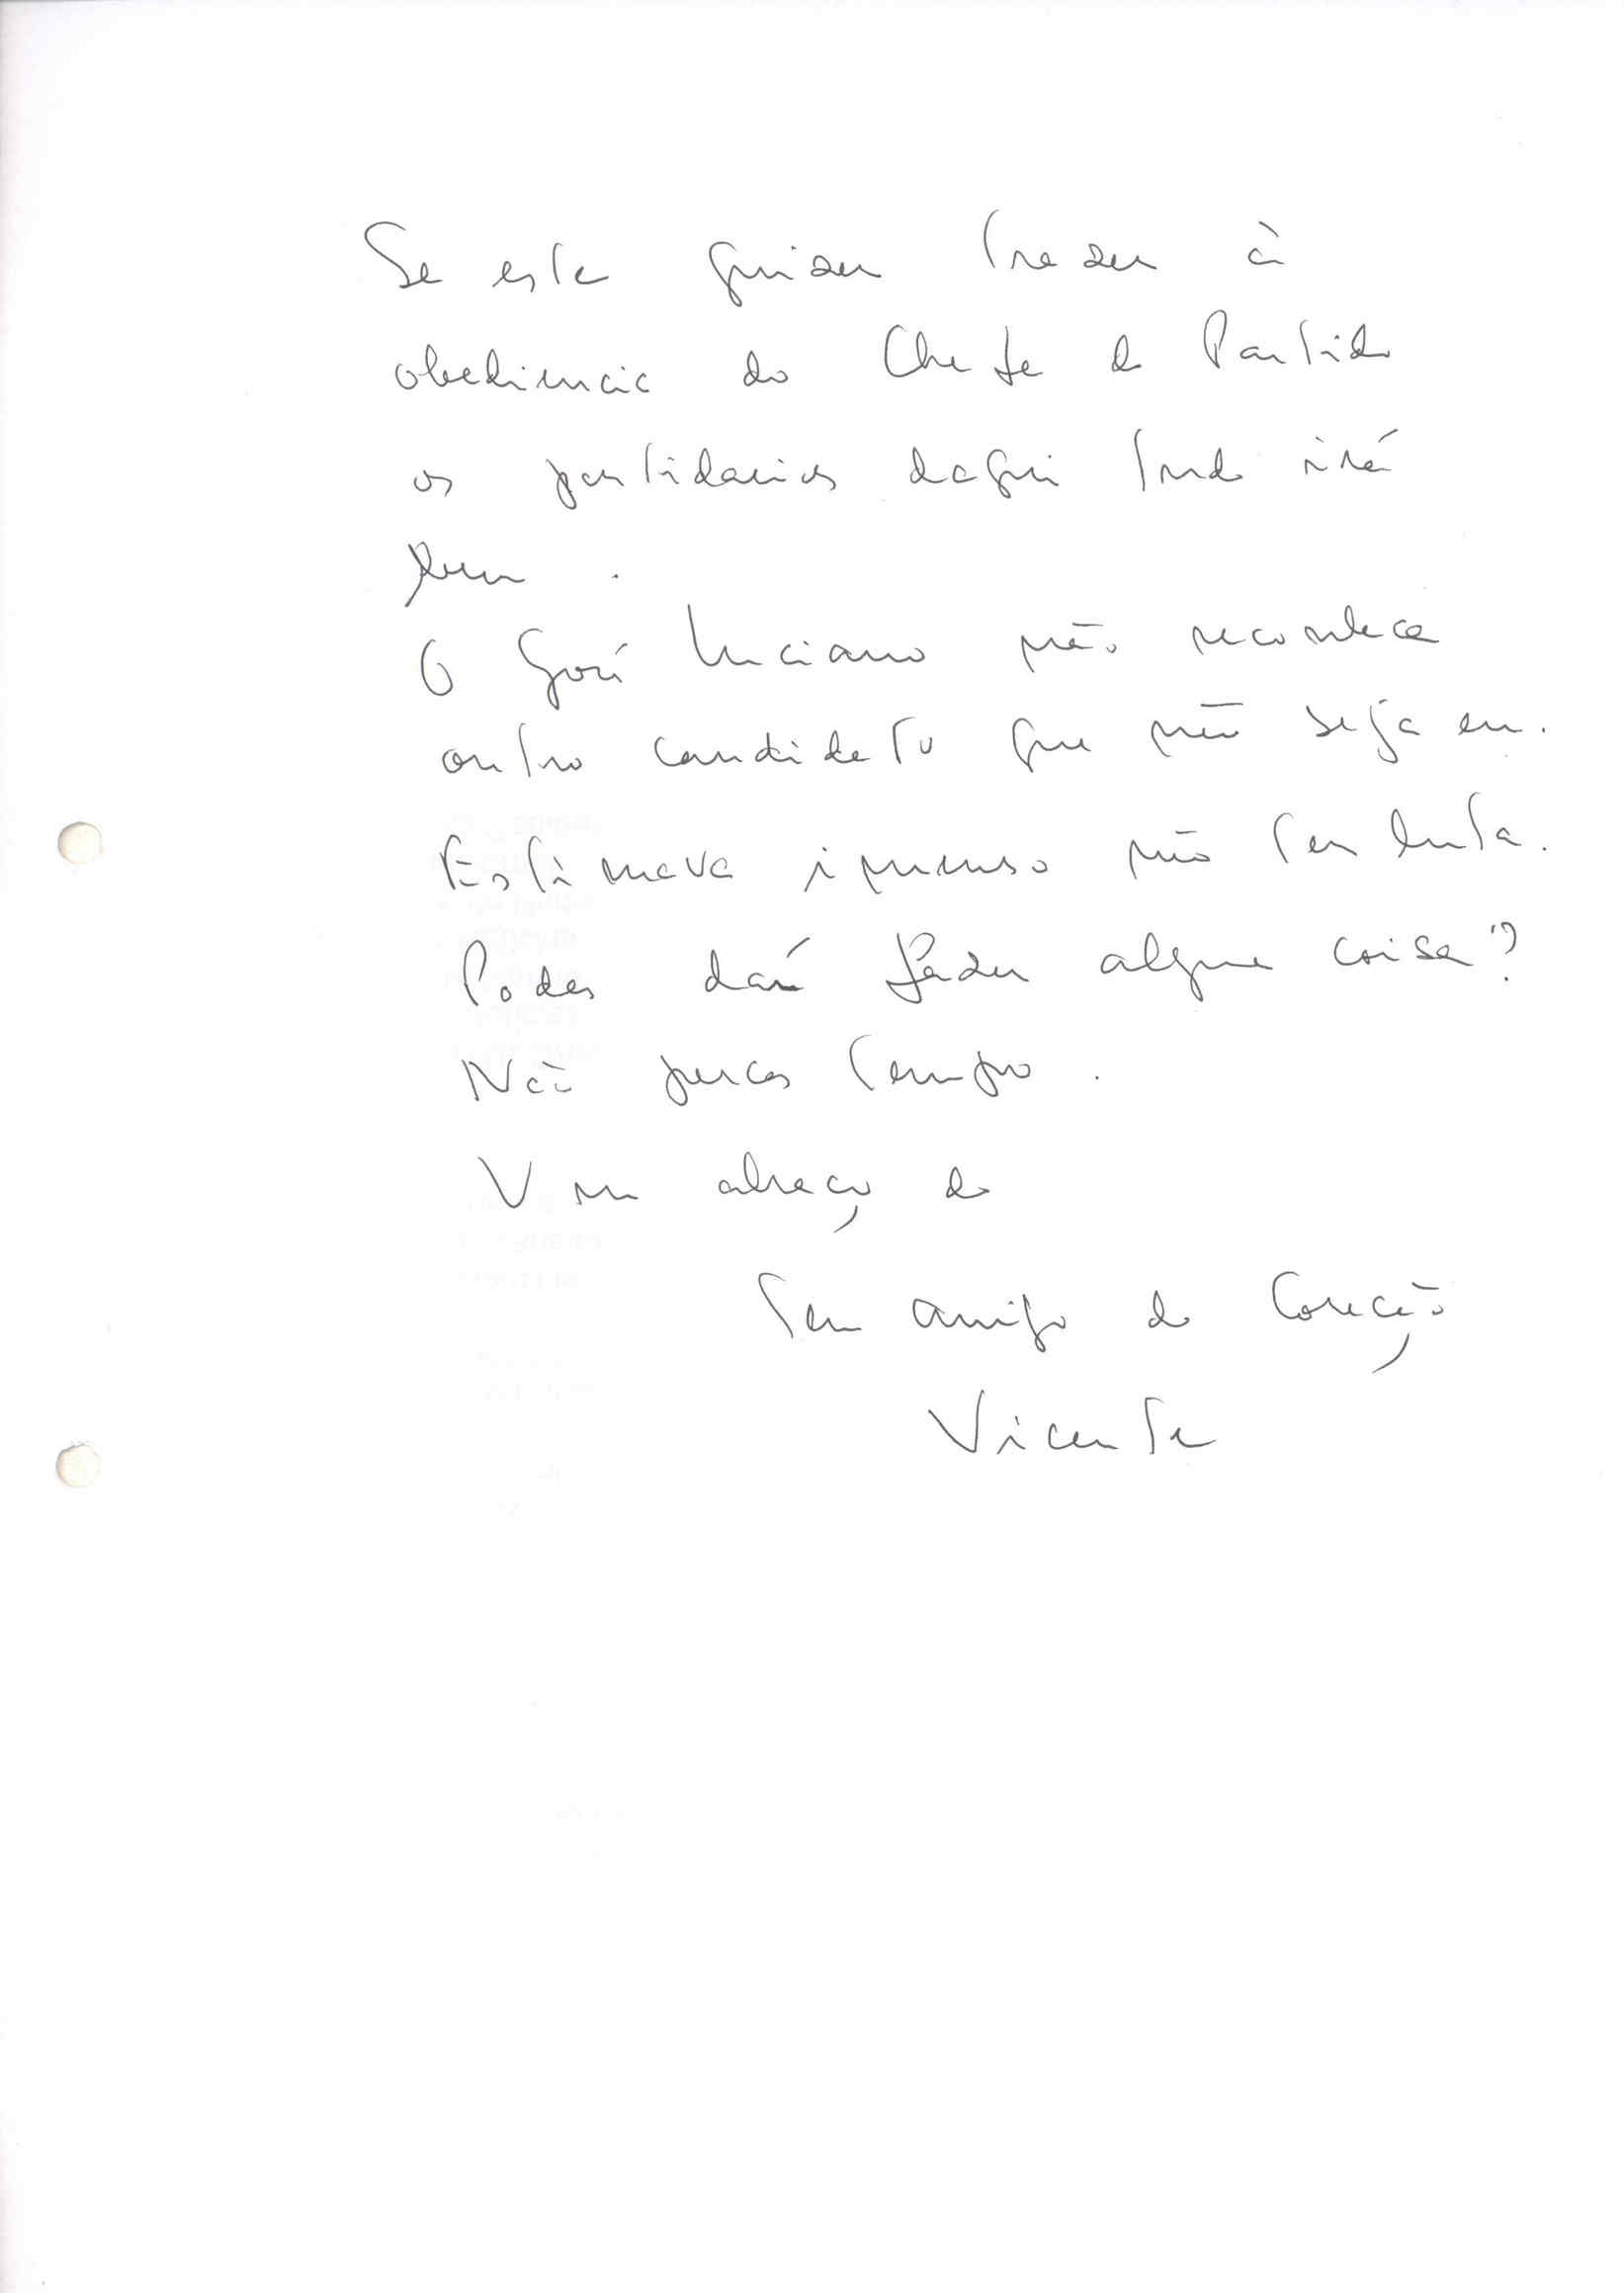 Se este quizer trazer à
obediencia do Chefe do Partido
os partidarios daqui tudo irá
bem.
O José Luciano não reconhece
outro candidato que não seja eu.
Estimava imenso não ter luta.
Podes daí fazer alguma coisa?
Não percas tempo.
Um abraço do
Teu amigo do Coração
Vicente